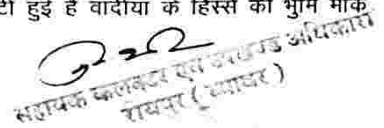 टी हुई है वादीया के हिस्से की भुमि मौके
सहायक कलक्टर एवं उपखण्ड अधिकारी
रायपुर ( ब्यावर )